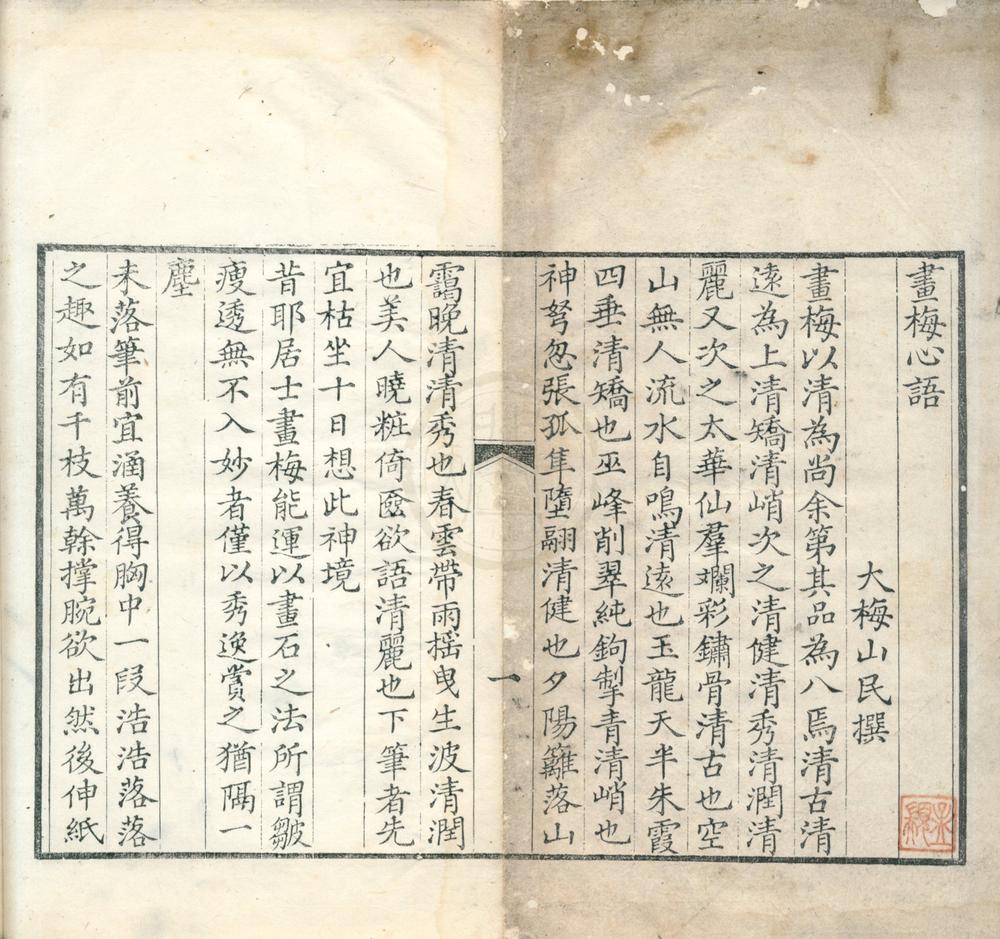 畫梅心語
大梅山民撰
畫梅以清為尚余第其品為八焉清古清
遠為上清矯清峭次之清健清秀清潤清
麗又次之太華仙羣斕彩鏽骨清古也空
山無人流水自鳴清遠也玉龍天半朱霞
四垂清矯也巫峰削翠純鉤掣青清峭也
神弩忽張孤隼墮翮清健也夕陽籬落山
一
靄晚清清秀也春雲帶雨搖曳生波清潤
也美人曉粧倚奩欲語清麗也下筆者先
宜枯坐十日想此神境
昔耶居士畫梅能運以畫石之法所謂皺
瘦透無不入妙者僅以秀逸賞之猶隔一
塵
未落筆前宜涵養得胸中一段浩浩落落
之趣如有千枝萬榦撑腕欲出然後伸紙